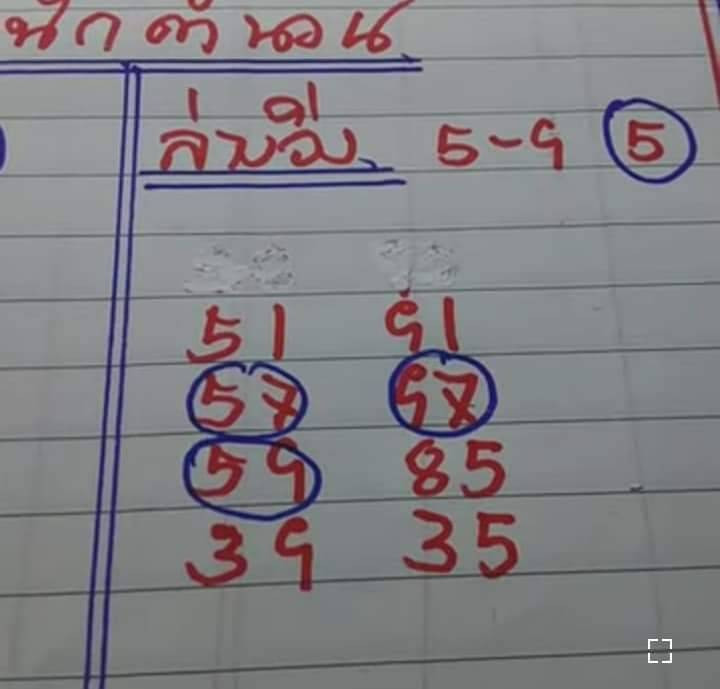 นักคำนวน
ล่าง 5-9 5
51 91
57 97
59 85
39 35